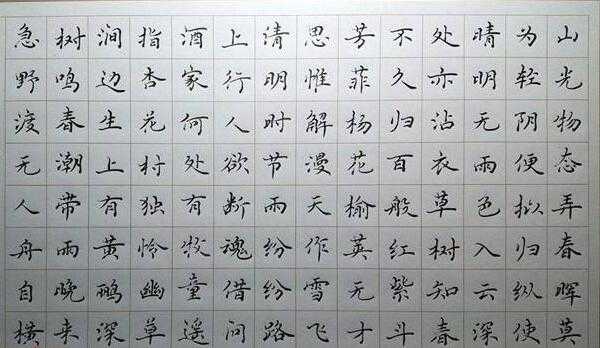 山光物态弄春晖莫
为轻阴便拟归纵使
晴明无雨色入云深
处亦沾衣草树知春
不久归百般红紫斗
芳菲杨花榆英无才
思惟解漫天作雪飞
清明时节雨纷纷路
上行人欲断魂借问
酒家何处有牧童遥
指杏花村独怜幽草
涧边生上有黄鹂深
树鸣春潮带雨晚来
急野渡无人舟自横